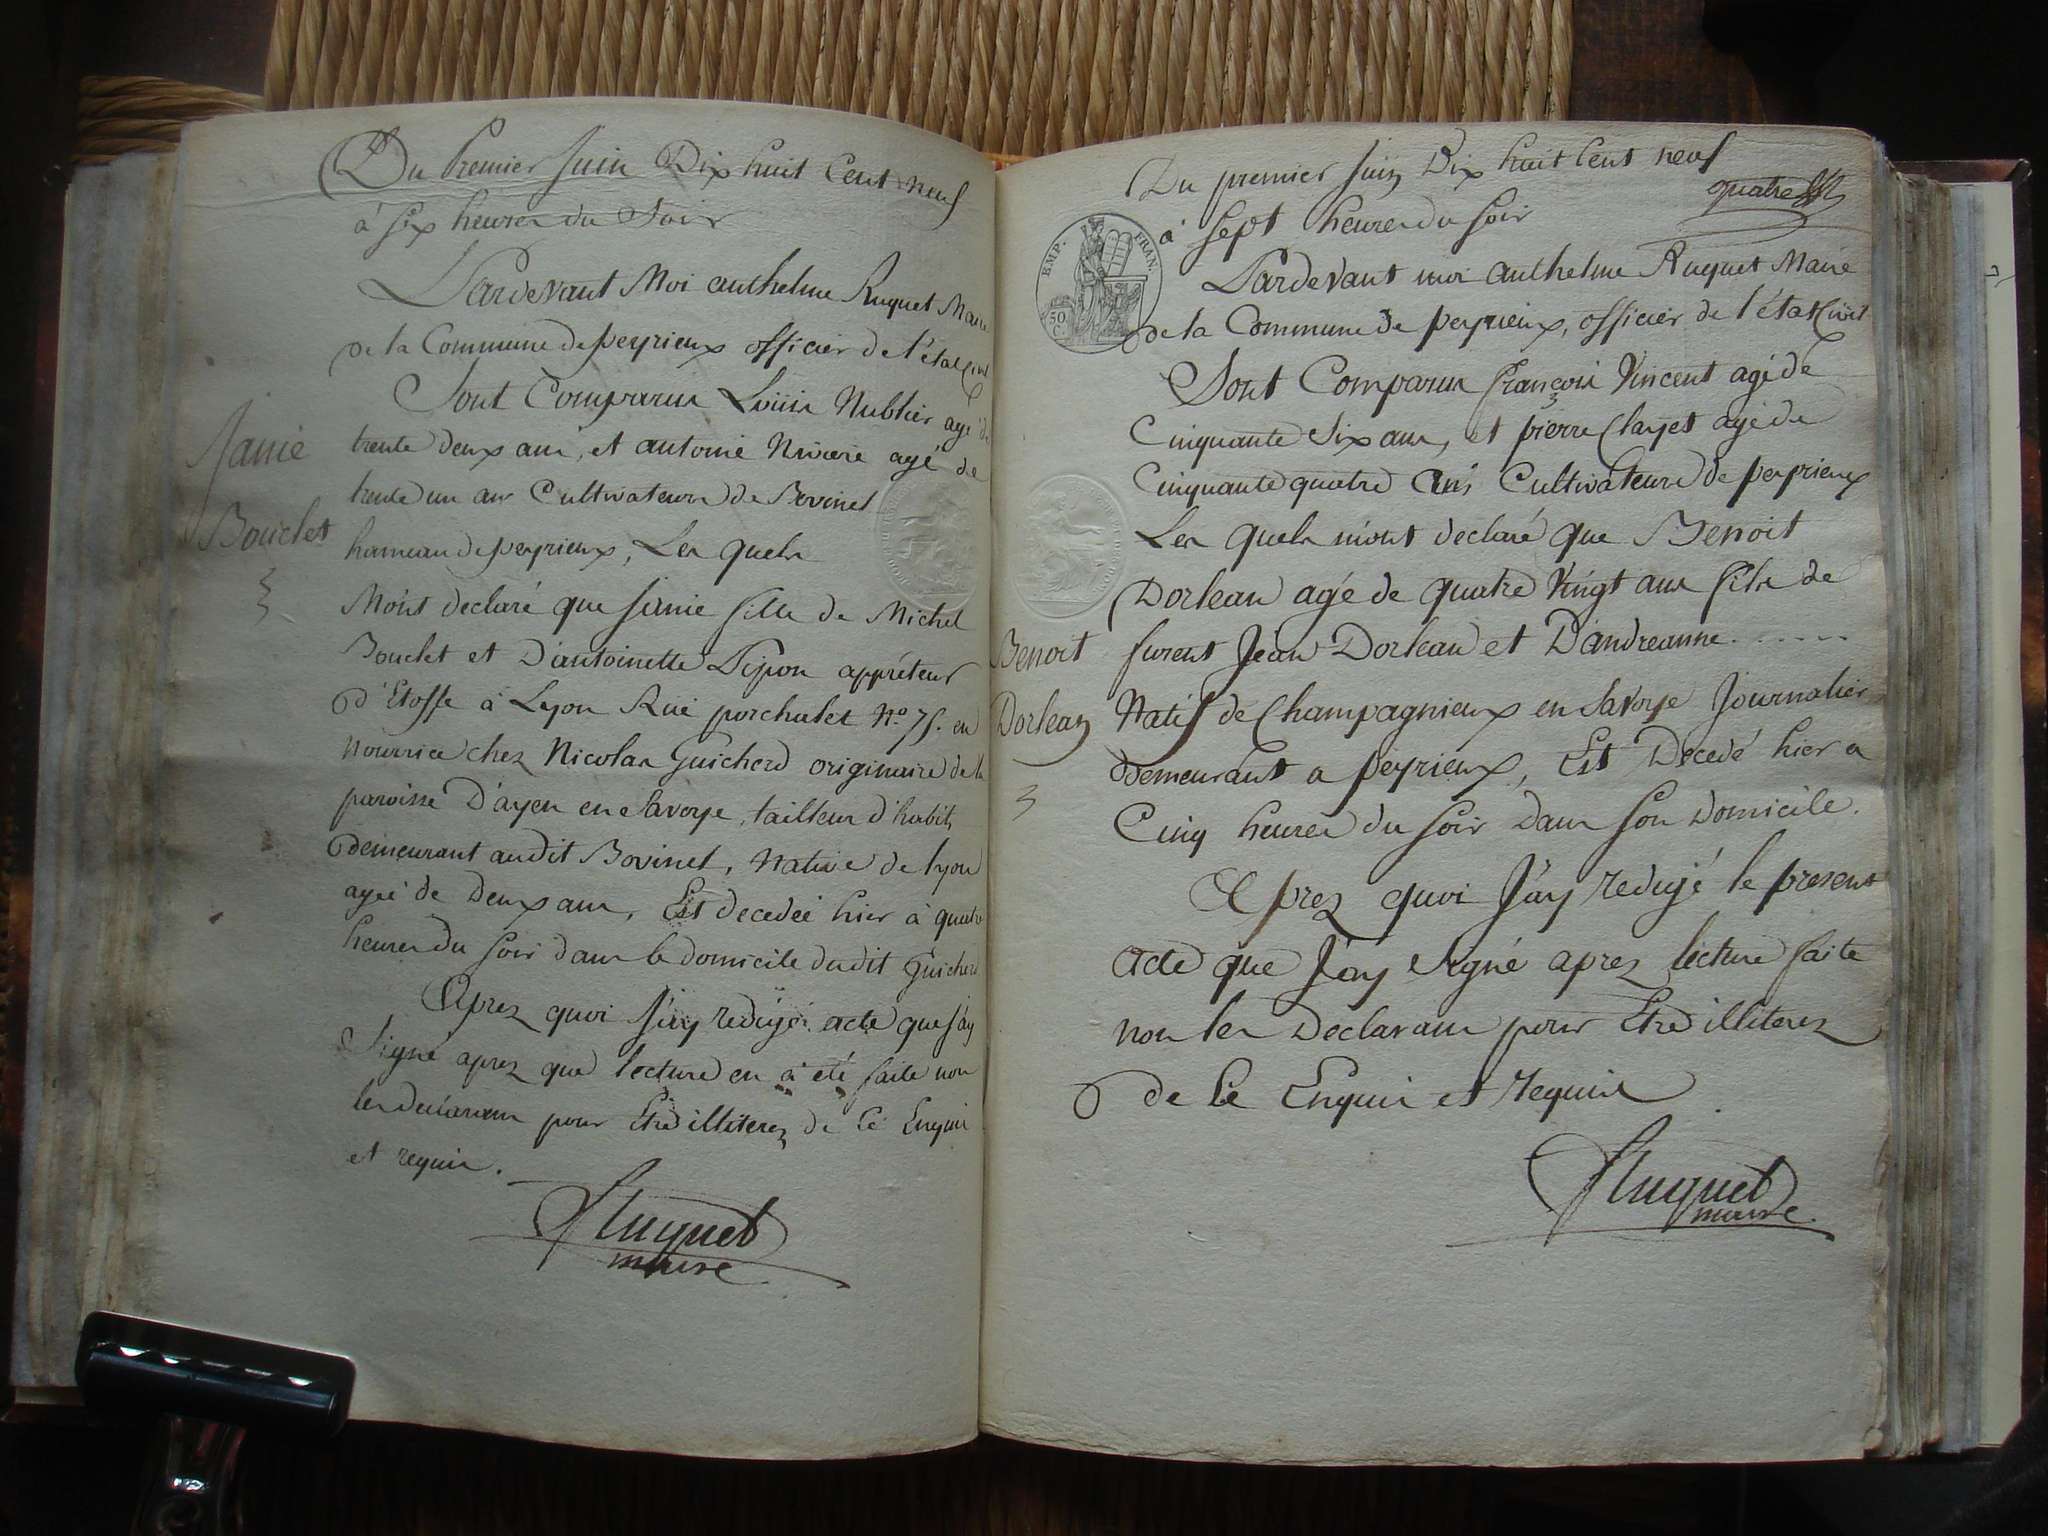 Du Premier Juin Dix huit Cent neuf
à six heures du Soir
Pardevant Moi anthelme Ruquet Maire
de la Commune de peyrieux officier de l'état Civil
Sont Comparus Louis Nublier agé de
trente deux ans, et antoine Riviere agé de
trente un ans Cultivateurs de Bovinel
hameau de peyrieux, Les quels
M'ont declaré que Janie fille de Michel
Bouclet et D'antoinette Pijon appréteur
d'Etoffe à Lyon Rue porchalet N.o 75. en
nourrice chez Nicolas Guicherd originaire de la
paroisse D'ayen en Savoye, tailleur d'habits
demeurant audit Bovinel, Native de lyon
agée de Deux ans, Est decedée hier à quatre
heures du soir dans le domicile dudit Guicherd
Aprez quoi J'ay redigé acte que J'ay
Signé aprez que lecture en a été faite non
les declarans pour Etre illiterez de Ce Enquis
et requis.
Ruquet
maire
Janie
Bouclet
Du premier Juin Dix huit Cent neuf
quatre
à sept heures du soir
EMP. FRAN.
50 C.
Pardevant moi anthelme Ruquet Maire
de la Commune de peyrieux, officier de l'état Civil
Sont Comparus françois Vincent agé de
Cinquante Six ans, et pierre Clayet agé de
Cinquante quatre ans Cultivateurs de peyrieux
Les quels m'ont declaré que Benoit
Dorlean agé de quatre Vingt ans fils de
furent Jean Dorlean et D'andreanne . . . . . .
Natif de Champagnieux en Savoye Journalier
demeurant a peyrieux, Est Decedé hier a
Cinq heures du soir dans son Domicile.
Aprez quoi J'ay redigé le present
acte que J'ay signé aprez lecture faite
non les Declarans pour Etre illiterez
de Ce Enquis et requis
Ruquet
maire
Benoit
Dorlean